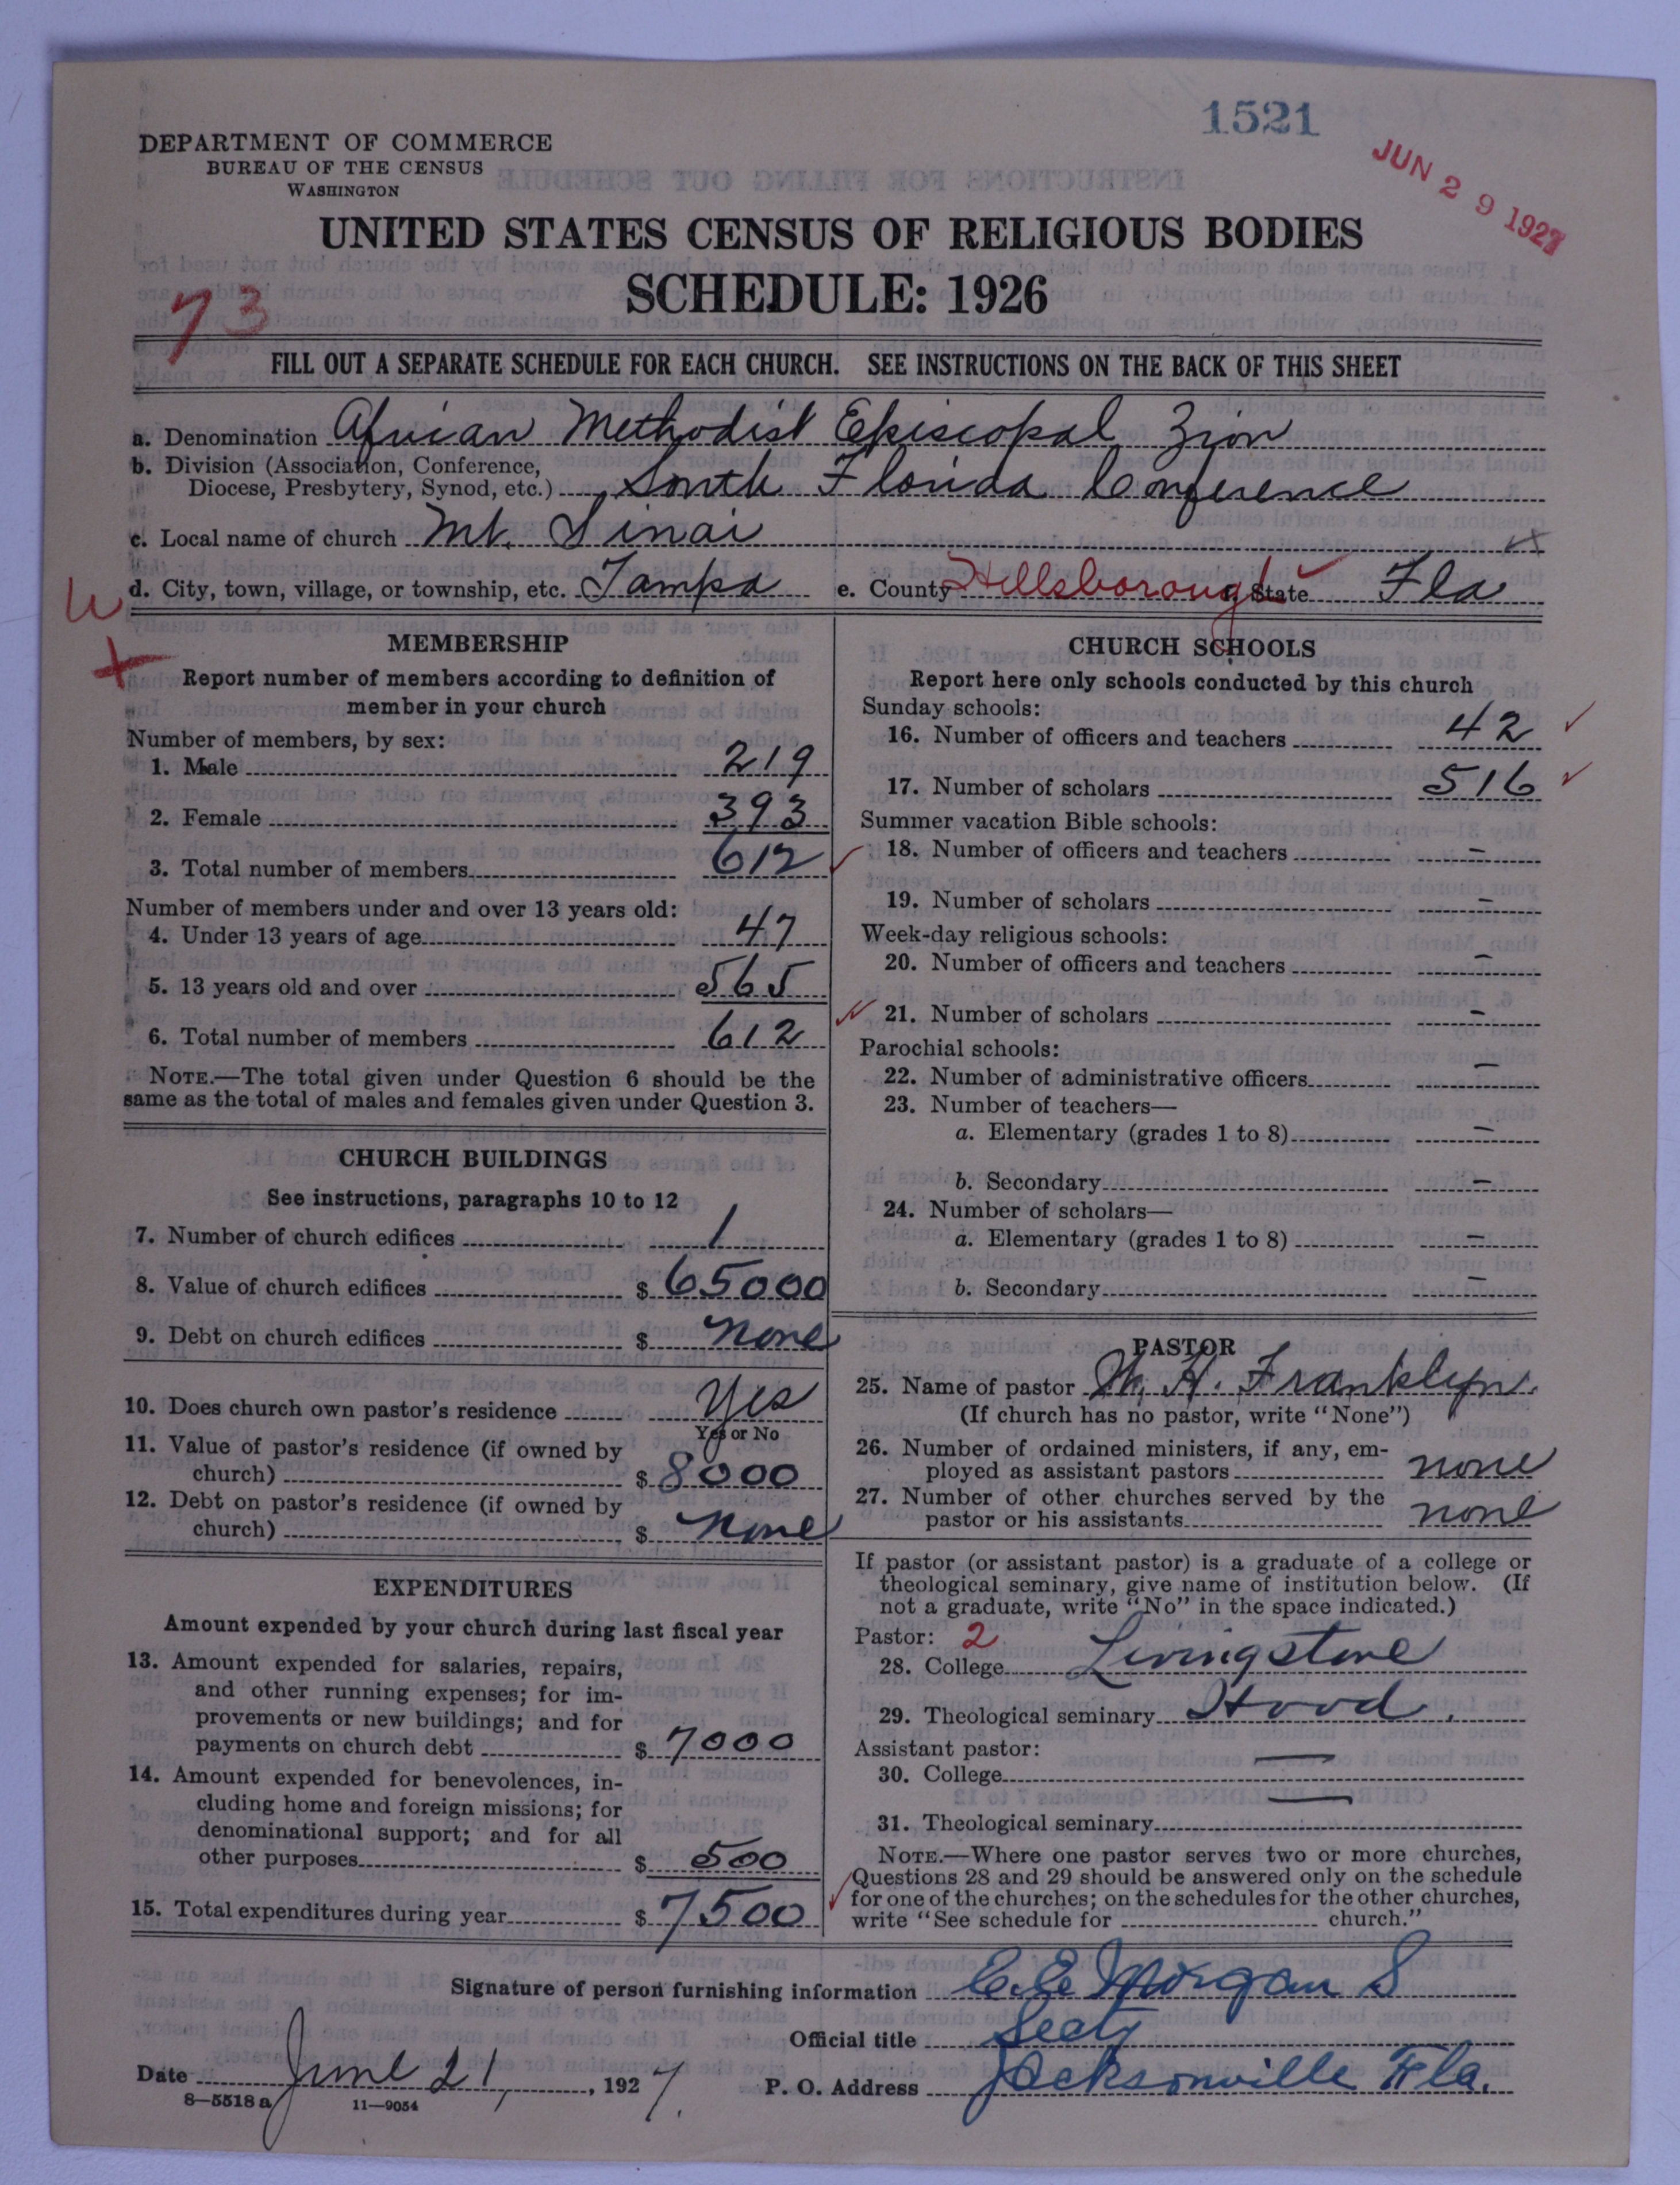 1521
JUN 29 1927
DEPARTMENT OF COMMERCE
BUREAU OF THE CENSUS
WASHINGTON
UNITED STATES CENSUS OF RELIGIOUS BODIES
SCHEDULE: 1926
73
FILL OUT A SEPARATE SCHEDULE FOR EACH CHURCH. SEE INSTRUCTIONS ON THE BACK OF THIS SHEET
a. Denomination African Methodist Episcopal Zion
b. Division (Association, Conference,
Diocese, Presbytery, Synod, etc.) South Florida Conference
c. Local name of church Mt. Sinai
d. City, town, village, or township, etc. Tampa e. County Hillsborough State Fla
MEMBERSHIP
Report number of members according to definition of
member in your church
Number of members, by sex:
1. Male 219
2. Female 393
3. Total number of members 612
Number of members under and over 13 years old:
4. Under 13 years of age 47
5. 13 years old and over 565
6. Total number of members 612
NOTE.—The total given under Question 6 should be the
same as the total of males and females given under Question 3.
CHURCH BUILDINGS
See instructions, paragraphs 10 to 12
7. Number of church edifices 1
8. Value of church edifices $ 65000
9. Debt on church edifices $ none
10. Does church own pastor's residence Yes
Yes or No
11. Value of pastor's residence (if owned by
church) $ 8000
12. Debt on pastor's residence (if owned by
church) $ none
EXPENDITURES
Amount expended by your church during last fiscal year
13. Amount expended for salaries, repairs,
and other running expenses; for im-
provements or new buildings; and for
payments on church debt $ 7000
14. Amount expended for benevolences, in-
cluding home and foreign missions; for
denominational support; and for all
other purposes $ 500
15. Total expenditures during year $ 7500
CHURCH SCHOOLS
Report here only schools conducted by this church
Sunday schools:
16. Number of officers and teachers 42
17. Number of scholars 516
Summer vacation Bible schools:
18. Number of officers and teachers –
19. Number of scholars –
Week-day religious schools:
20. Number of officers and teachers –
21. Number of scholars –
Parochial schools:
22. Number of administrative officers –
23. Number of teachers—
a. Elementary (grades 1 to 8) –
b. Secondary –
24. Number of scholars—
a. Elementary (grades 1 to 8) –
b. Secondary –
PASTOR
25. Name of pastor W. H. Franklyn.
(If church has no pastor, write "None")
26. Number of ordained ministers, if any, em-
ployed as assistant pastors none
27. Number of other churches served by the
pastor or his assistants none
If pastor (or assistant pastor) is a graduate of a college or
theological seminary, give name of institution below. (If
not a graduate, write "No" in the space indicated.)
Pastor: 2
28. College Livingstone
29. Theological seminary Hood.
Assistant pastor:
30. College —
31. Theological seminary —
NOTE.—Where one pastor serves two or more churches,
Questions 28 and 29 should be answered only on the schedule
for one of the churches; on the schedules for the other churches,
write "See schedule for church."
Signature of person furnishing information C. E. Morgan S
Official title Secty
Date June 21, 1927. P. O. Address Jacksonville Fla.
8—5518 a 11—9054